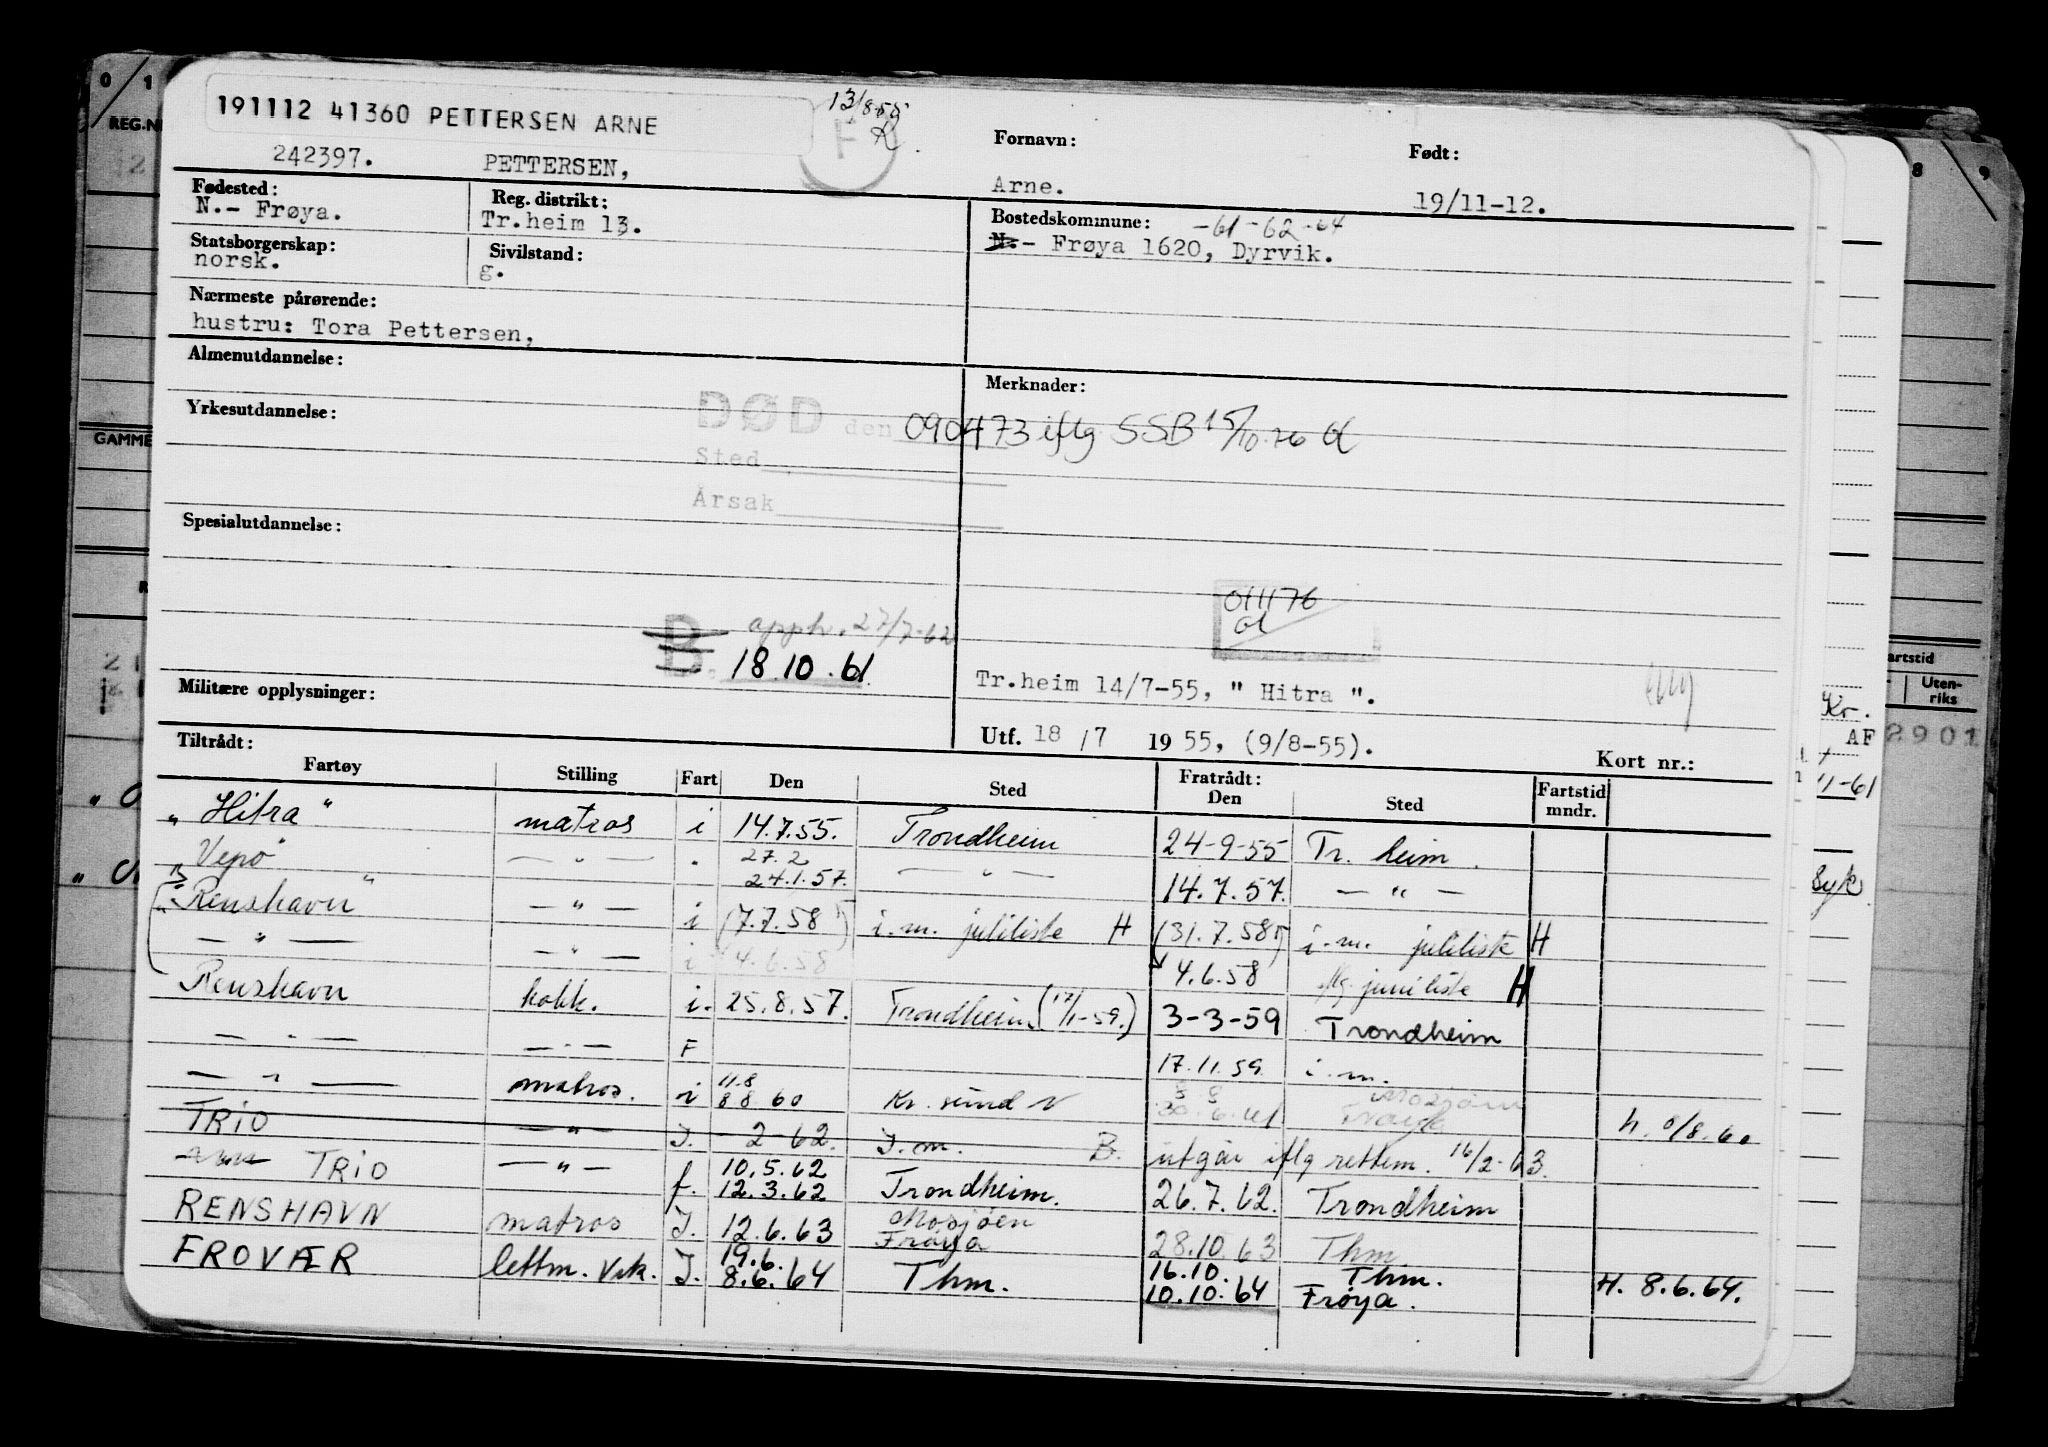 191112 41360 PETTERSEN ARNE
13/8-55
F
242397. PETTERSEN,
Fornavn: Arne.
Født: 19/11-12.
Fødested: N.- Frøya.
Reg. distrikt: Tr.heim 13.
Bostedskommune: -61-62-64
N.- Frøya 1620, Dyrvik.
Statsborgerskap: norsk.
Sivilstand: g.
Nærmeste pårørende:
hustru: Tora Pettersen,
Almenutdannelse:
Merknader:
Yrkesutdannelse:
DØD den 090473 iflg SSB 15/10-76
Sted
Årsak
Spesialutdannelse:
011176
B. opph. 27/7-62
18.10.61
Militære opplysninger:
Tr.heim 14/7-55, " Hitra ".
Utf. 18/7 1955, (9/8-55).
Kort nr.:
Tiltrådt: Fratrådt:
Fartøy Stilling Fart Den Sted Den Sted Fartstid mndr.
"Hitra" matros i 14.7.55. Trondheim 24-9-55 Tr. heim.
Vepö — " — " 27.2 24.1.57. — " — 14.7.57. — " —
"Renshavn" — " — i (7.7.58) i.m. juliliste H (31.7.58) i.m. juliliste H
— " — — " — i 4.6.58 4.6.58 iflg. juniliste H
Renshavn kokk. i. 25.8.57. Trondheim (17/1-59.) 3-3-59 Trondheim
— " — — " — F 17.11.59 i.m.
— " — matros. i 11.8 8.8.60 Kr. sund N 30.6.61 h. 8/8.60
TRIO — " — I. 2-62. I.m. B. utgår iflg rettem. 16/2-63.
TRIO — " — f. 10.5.62 12.3.62 Trondheim. 26.7.62. Trondheim
RENSHAVN matros I. 12.6.63 Mosjøen Frøya 28.10.63 Thm
FROVÆR lettm. Vek. I. 19.6. 8.6.64 Thm. 16.10. 10.10.64 Thm. Frøya. H. 8.6.64.